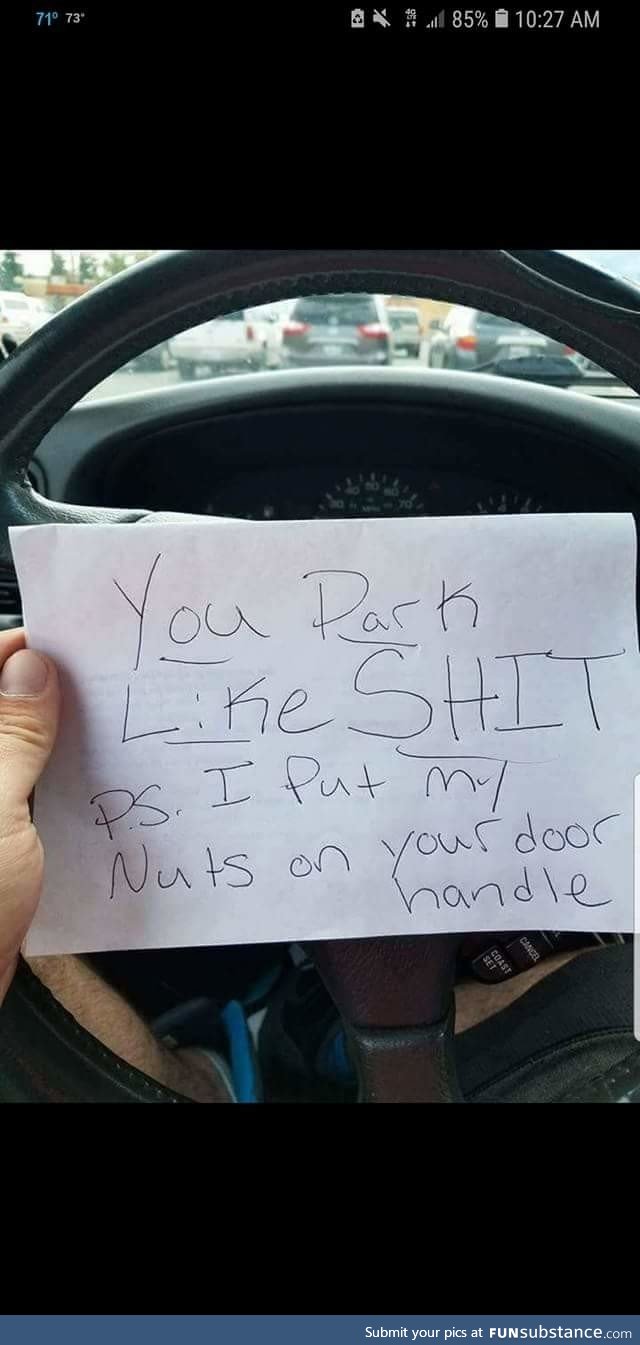 71° 73° 4G LTE 85% 10:27 AM
You Park
Like SHIT
P.S. I Put my
Nuts on your door
handle
COAST SET CANCEL
Submit your pics at FUNsubstance.com